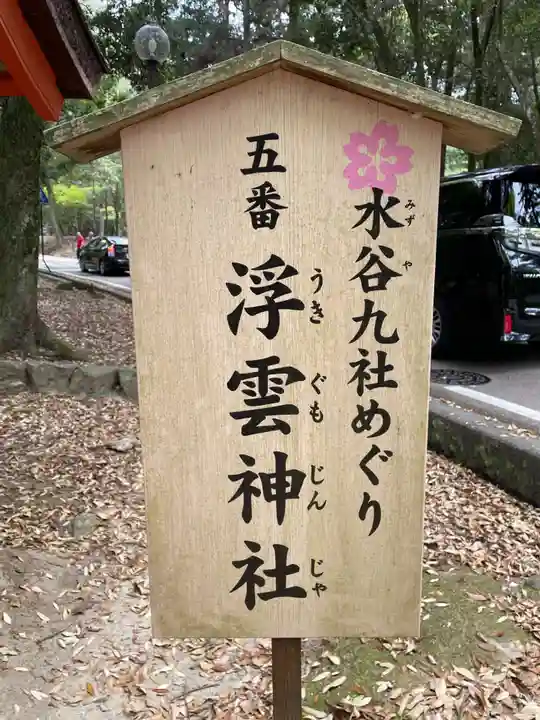 水谷九社めぐり
みずや
五番
浮雲神社
うきぐもじんじゃ